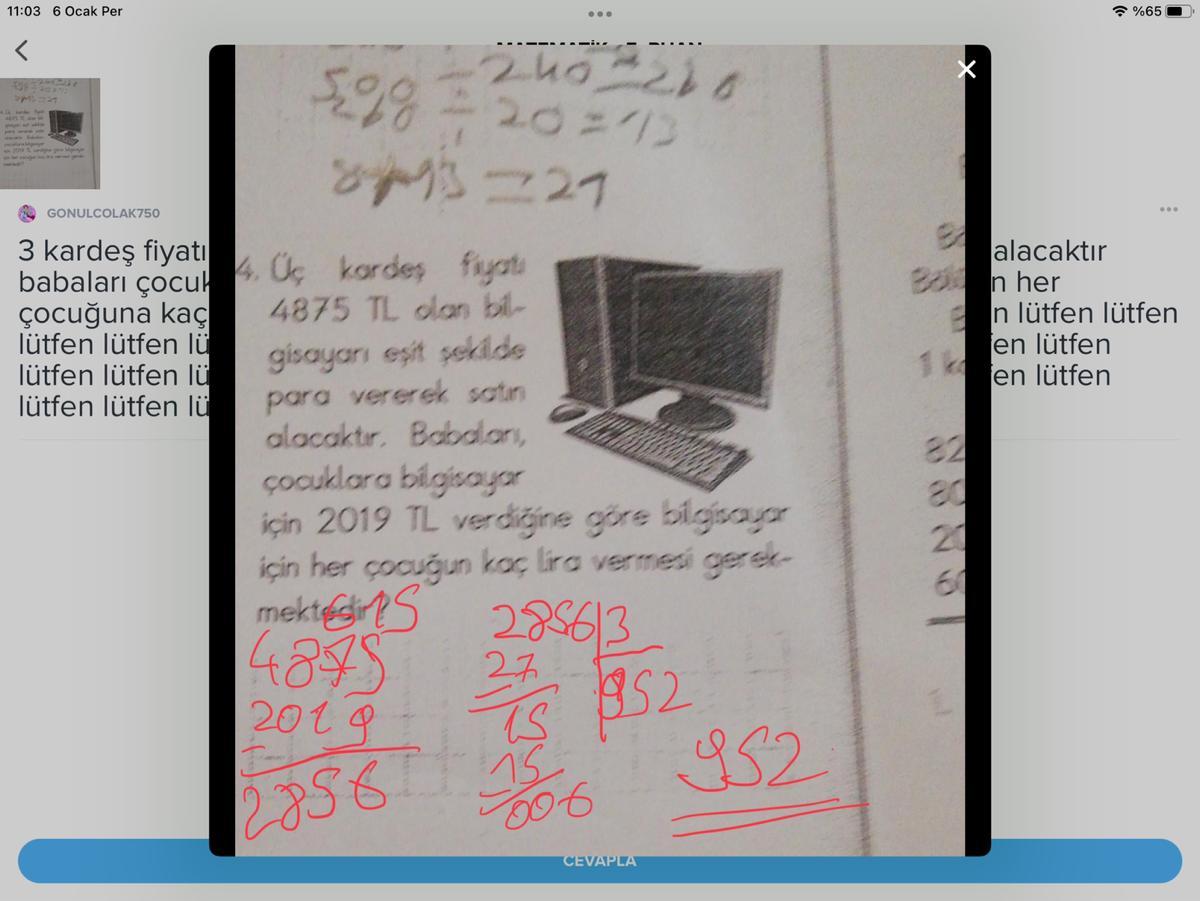 11:03 6 Ocak Per
%65
GONULCOLAK750
3 kardeş fiyatı
alacaktır
babaları çocuk
n her
çocuğuna kaç
n lütfen lütfen
lütfen lütfen lü
en lütfen
lütfen lütfen lü
fen lütfen
lütfen lütfen lü
20 = 13
8+13 = 21
4. Üç kardeş fiyatı
4875 TL olan bil-
gisayarı eşit şekilde
para vererek satın
alacaktır. Babaları,
çocuklara bilgisayar
için 2019 TL verdiğine göre bilgisayar
için her çocuğun kaç lira vermesi gerek-
mektedir?
615
4875
2019
2856
2856 3
27 952
15
15
006
952
82
80
20
60
CEVAPLA